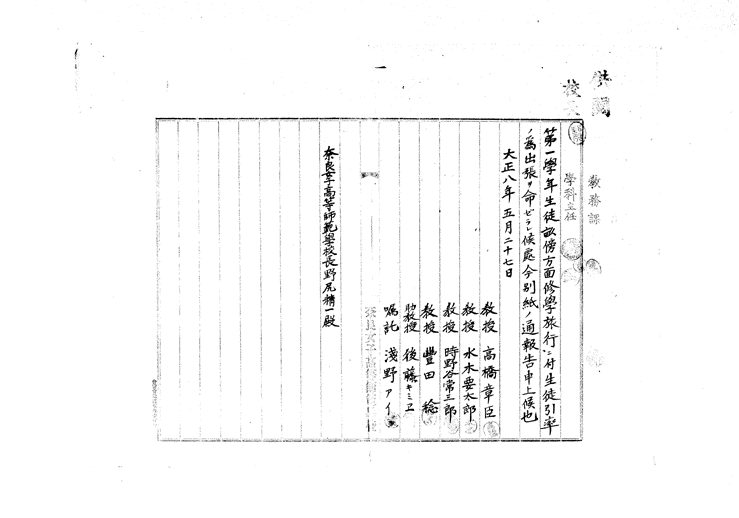 供閲
校長
教務課
学科主任
第一學年生徒畝傍方面修學旅行ニ付生徒引率
ノ爲出張ヲ命ゼラレ候處今別紙ノ通報告申上候也
大正八年五月二十七日
教授 高橋章臣
教授 水木要太郎
教授 時野谷常三郎
教授 豐田稔
助教授 後藤キミヱ
嘱託 淺野アイ
奈良女子高等師範學校
奈良女子高等師範學校長野尻精一殿